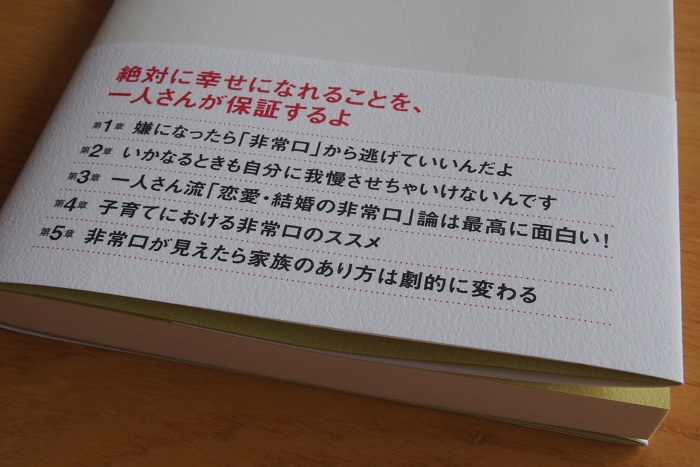 絶対に幸せになれることを、
一人さんが保証するよ
第1章 嫌になったら「非常口」から逃げていいんだよ
第2章 いかなるときも自分に我慢させちゃいけないんです
第3章 一人さん流「恋愛・結婚の非常口」論は最高に面白い!
第4章 子育てにおける非常口のススメ
第5章 非常口が見えたら家族のあり方は劇的に変わる